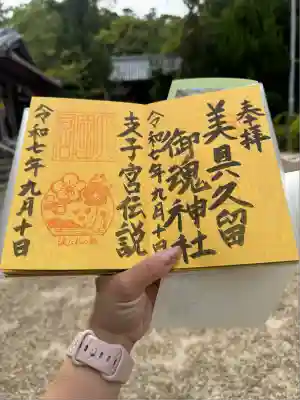 奉拝
美具久留
御魂神社
令和七年九月十日
支子宮伝説
令和七年九月十日